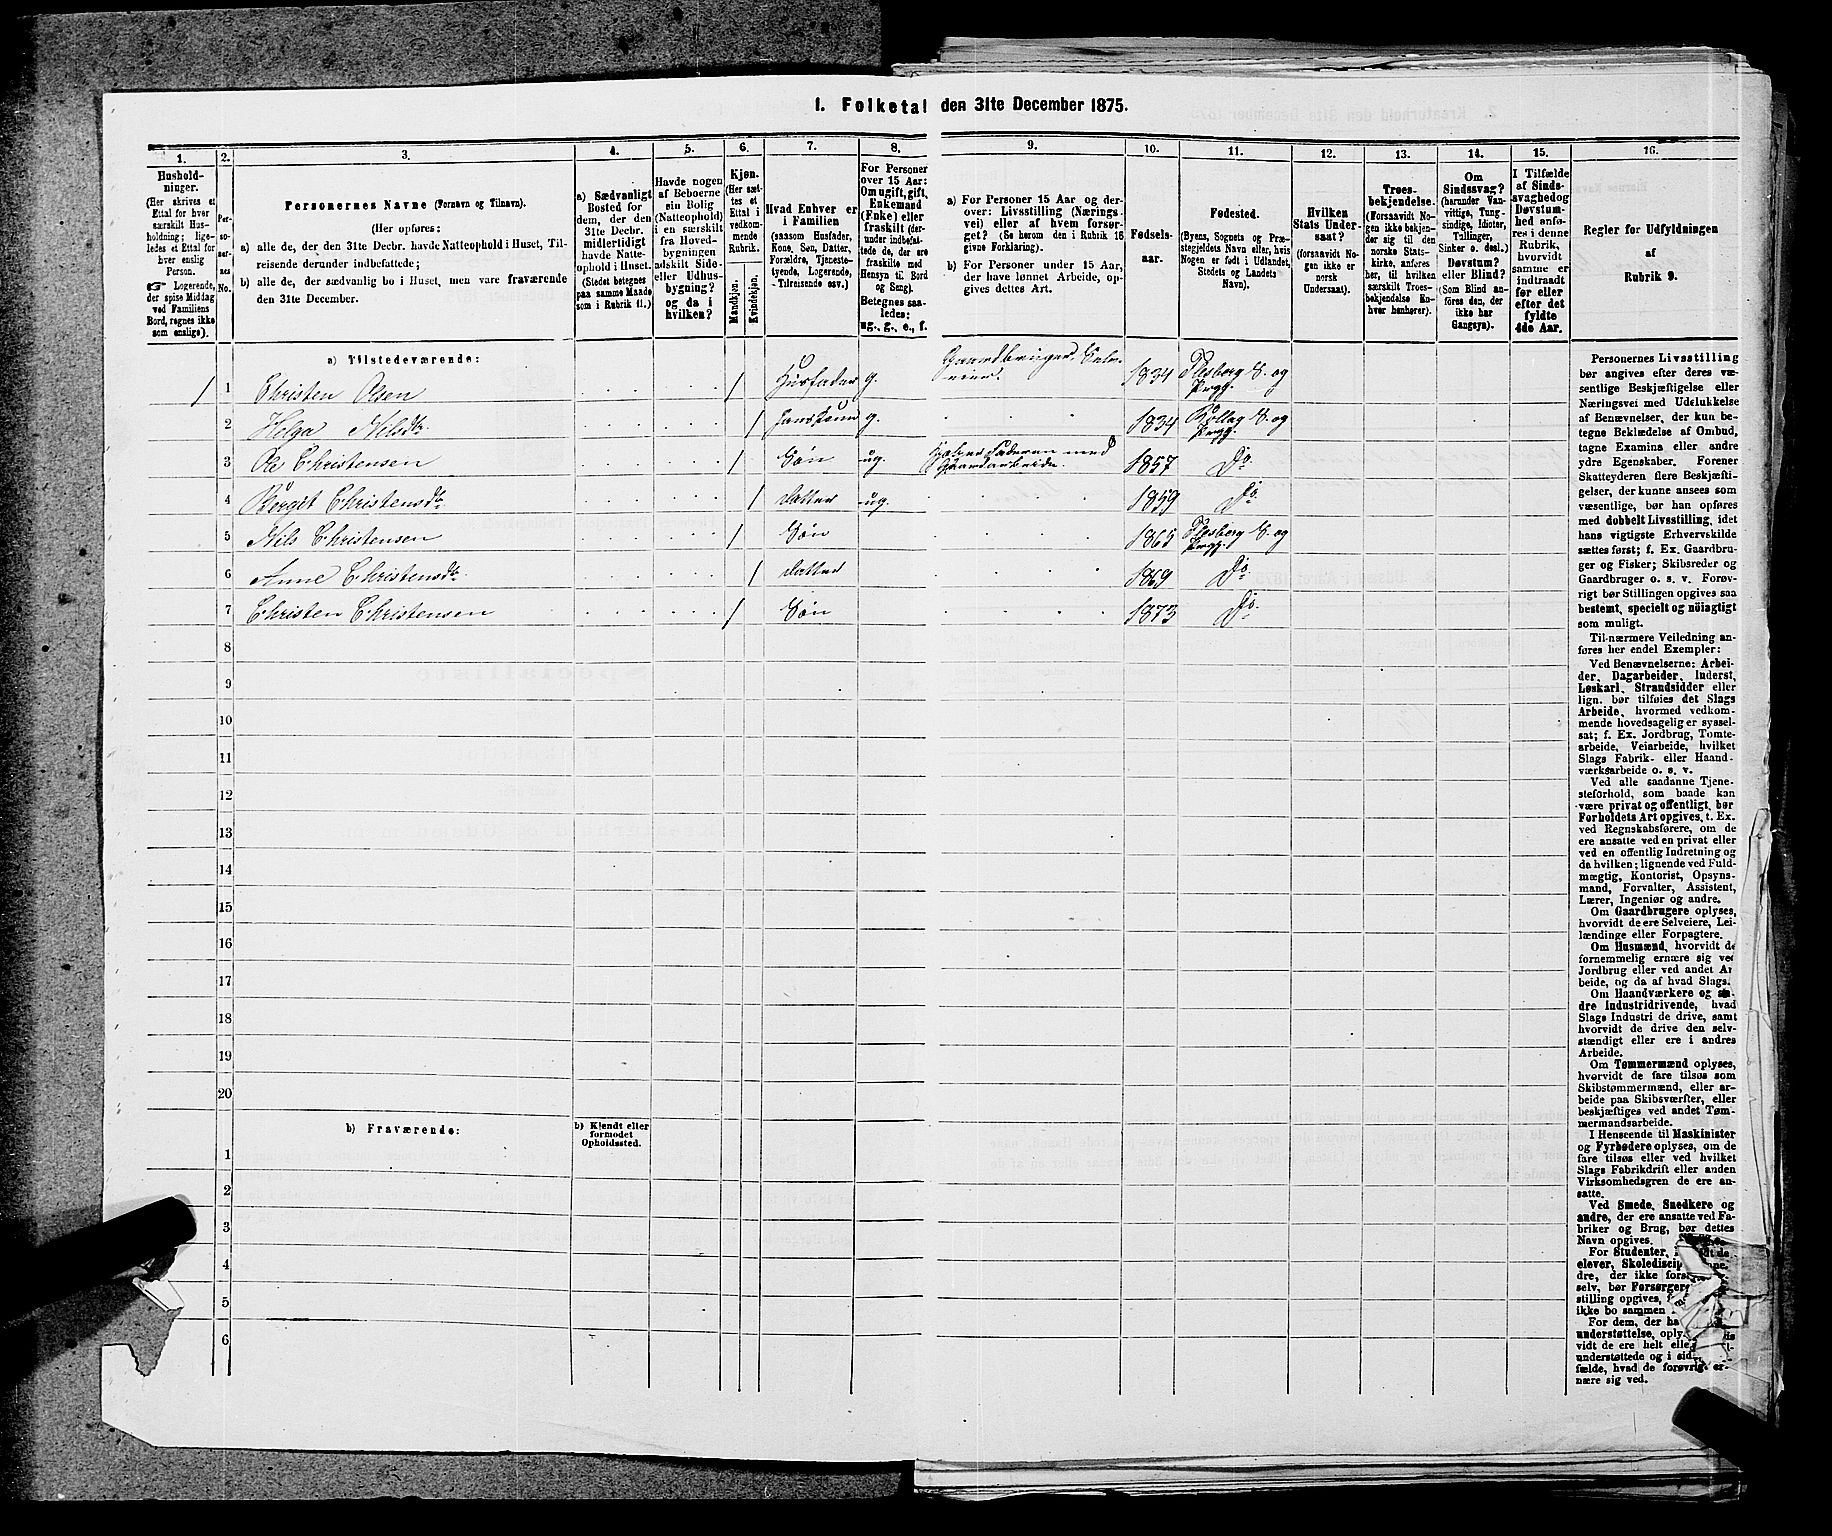 1. Folketal den 31te December 1875.
1.
2.
3.
4.
5.
6.
7.
8.
9.
10.
11.
12.
13.
14.
15.
16.
Hushold-
ninger.
(Her skrives et
Ettal for hver
særskilt Hus-
holdning; lige-
ledes et Ettal for
hver enslig
Person.
☞ Logerende,
der spise Middag
ved Familiens
Bord, regnes ikke
som enslige).
Per-
so-
ner-
nes
No.
Personernes Navne (Fornavn og Tilnavn).
(Her opføres:
a) alle de, der den 31te Decbr. havde Natteophold i Huset, Til-
reisende derunder indbefattede;
b) alle de, der sædvanlig bo i Huset, men vare fraværende
den 31te December.
a) Sædvanligt
Bosted for
dem, der den
31te Decbr.
midlertidigt
havde Natte-
ophold i Huset.
(Stedet betegnes
paa samme Maade
som i Rubrik 11.)
Havde nogen
af Beboerne
sin Bolig
(Natteophold)
i en særskilt
fra Hoved-
bygningen
adskilt Side-
eller Udhus-
bygning?
og da i
hvilken?
Kjøn.
(Her sæt-
tes et
Ettal i
vedkom-
mende
Rubrik.
Mandkjøn.
Kvindekjøn.
Hvad Enhver er
i Familien
(saasom Husfader,
Kone, Søn, Datter,
Forældre, Tjeneste-
tyende, Logerende,
Tilreisende osv.)
For Personer
over 15 Aar:
Om ugift, gift,
Enkemand
(Enke) eller
fraskilt (der-
under indbefat-
tede de, der ere
fraskilte med
Hensyn til Bord
og Seng).
Betegnes saa-
ledes:
ug., g., e., f.
a) For Personer 15 Aar og der-
over: Livsstilling (Nærings-
vei) eller af hvem forsør-
get? (Se herom den i Rubrik 16
givne Forklaring).
b) For Personer under 15 Aar,
der have lønnet Arbeide, op-
gives dettes Art.
Fødsels-
aar.
Fødested.
(Byens, Sognets og Præ-
stegjeldets Navn eller, hvis
Nogen er født i Udlandet,
Stedets og Landets
Navn).
Hvilken
Stats Under-
saat?
(forsaavidt No-
gen ikke er
norsk
Undersaat).
Troes-
bekjendelse.
(Forsaavidt No-
gen ikke bekjen-
der sig til den
norske Stats-
kirke, anføres
her, til hvilken
særskilt Troes-
bekjendelse En-
hver henhører).
Om
Sindssvag?
(herunder Van-
vittige, Tung-
sindige, Idioter,
Tullinger,
Sinker o. desl.)
Døvstum?
eller Blind?
(Som Blind an-
føres den, der
ikke har
Gangsyn).
I Tilfælde
af Sinds-
svaghed og
Døvstum-
hed anfø-
res i denne
Rubrik,
hvorvidt
samme er
indtraadt
før eller
efter det
fyldte
4de Aar.
Regler for Udfyldningen
af
Rubrik 9.
a) Tilstedeværende:
1 1 Christen Olsen 1 Husfader g. Gaardbruger, Selv-
eier. 1834 Flesberg S. og
Prgj.
2 Helga Nilsdtr. 1 hans Kone g. 1834 Rollag S. og
Prgj.
3 Ole Christensen 1 Søn ug. Hjelper Faderen med
Gaardarbeide. 1857 Do.
4 Bergit Christensdtr. 1 Datter ug. 1859 Do.
5 Nils Christensen 1 Søn 1865 Flesberg S. og
Prgj.
6 Anne Christensdtr. 1 Datter 1869 Do.
7 Christen Christensen 1 Søn 1873 Do.
8
9
10
11
12
13
14
15
16
17
18
19
20
b) Fraværende:
b) Kjendt eller
formodet
Opholdssted.
1
2
3
4
5
6
Personernes Livsstilling
bør angives efter deres væ-
sentlige Beskjæftigelse eller
Næringsvei med Udelukkelse
af Benævnelser, der kun be-
tegne Beklædelse af Ombud,
tagne Examina eller andre
ydre Egenskaber. Forener
Skatteyderen flere Beskjæfti-
gelser, der kunne ansees som
væsentlige, bør han opføres
med dobbelt Livsstilling, idet
hans vigtigste Erhvervskilde
sættes først; f. Ex. Gaardbru-
ger og Fisker; Skibsreder og
Gaardbruger o. s. v. Forøv-
rigt bør Stillingen opgives saa
bestemt, specielt og nöiagtigt
som muligt.
Til nærmere Veiledning an-
føres her endel Exempler:
Ved Benævnelserne: Arbei-
der, Dagarbeider, Inderst,
Løskarl, Strandsidder eller
lign. bør tilføies det Slags
Arbeide, hvormed vedkom-
mende hovedsagelig er syssel-
sat; f. Ex. Jordbrug, Tomte-
arbeide, Veiarbeide, hvilket
Slags Fabrik- eller Haand-
værksarbeide o. s. v.
Ved alle saadanne Tjene-
steforhold, som baade kan
være privat og offentligt, bør
Forholdets Art opgives, t. Ex.
ved Regnskabsførere, om de
ere ansatte ved en privat eller
ved en offentlig Indretning og
da hvilken; lignende ved Fuld-
mægtig, Kontorist, Opsyns-
mand, Forvalter, Assistent,
Lærer, Ingeniør og andre.
Om Gaardbrugere oplyses,
hvorvidt de ere Selveiere, Lei-
lændinge eller Forpagtere.
Om Husmænd, hvorvidt de
fornemmelig ernære sig ved
Jordbrug eller ved andet Ar
beide, og da af hvad Slags.
Om Haandværkere og an-
dre Industridrivende, hvad
Slags Industri de drive, samt
hvorvidt de drive den selv-
stændigt eller ere i andres
Arbeide.
Om Tømmermænd oplyses,
hvorvidt de fare tilsøs som
Skibstømmermænd, eller ar-
beide paa Skibsværfter, eller
beskjæftiges ved andet Tøm-
mermandsarbeide.
I Henseende til Maskinister
og Fyrbødere oplyses, om de
fare tilsøs eller ved hvilket
Slags Fabrikdrift eller anden
Virksomhedsgren de ere an-
satte.
Ved Smede, Snedkere og
andre, der ere ansatte ved Fa-
briker og Brug, bør dettes
Navn opgives.
For Studenter,
elever, Skoledisci
dre, der ikke
selv, bør Forsørger
stilling opgives,
ikke bo sammen
For dem, der
understøttelse, oply
vidt de ere helt
understøttede og i
fælde, hvad de forøvrigt er-
nære sig ved.